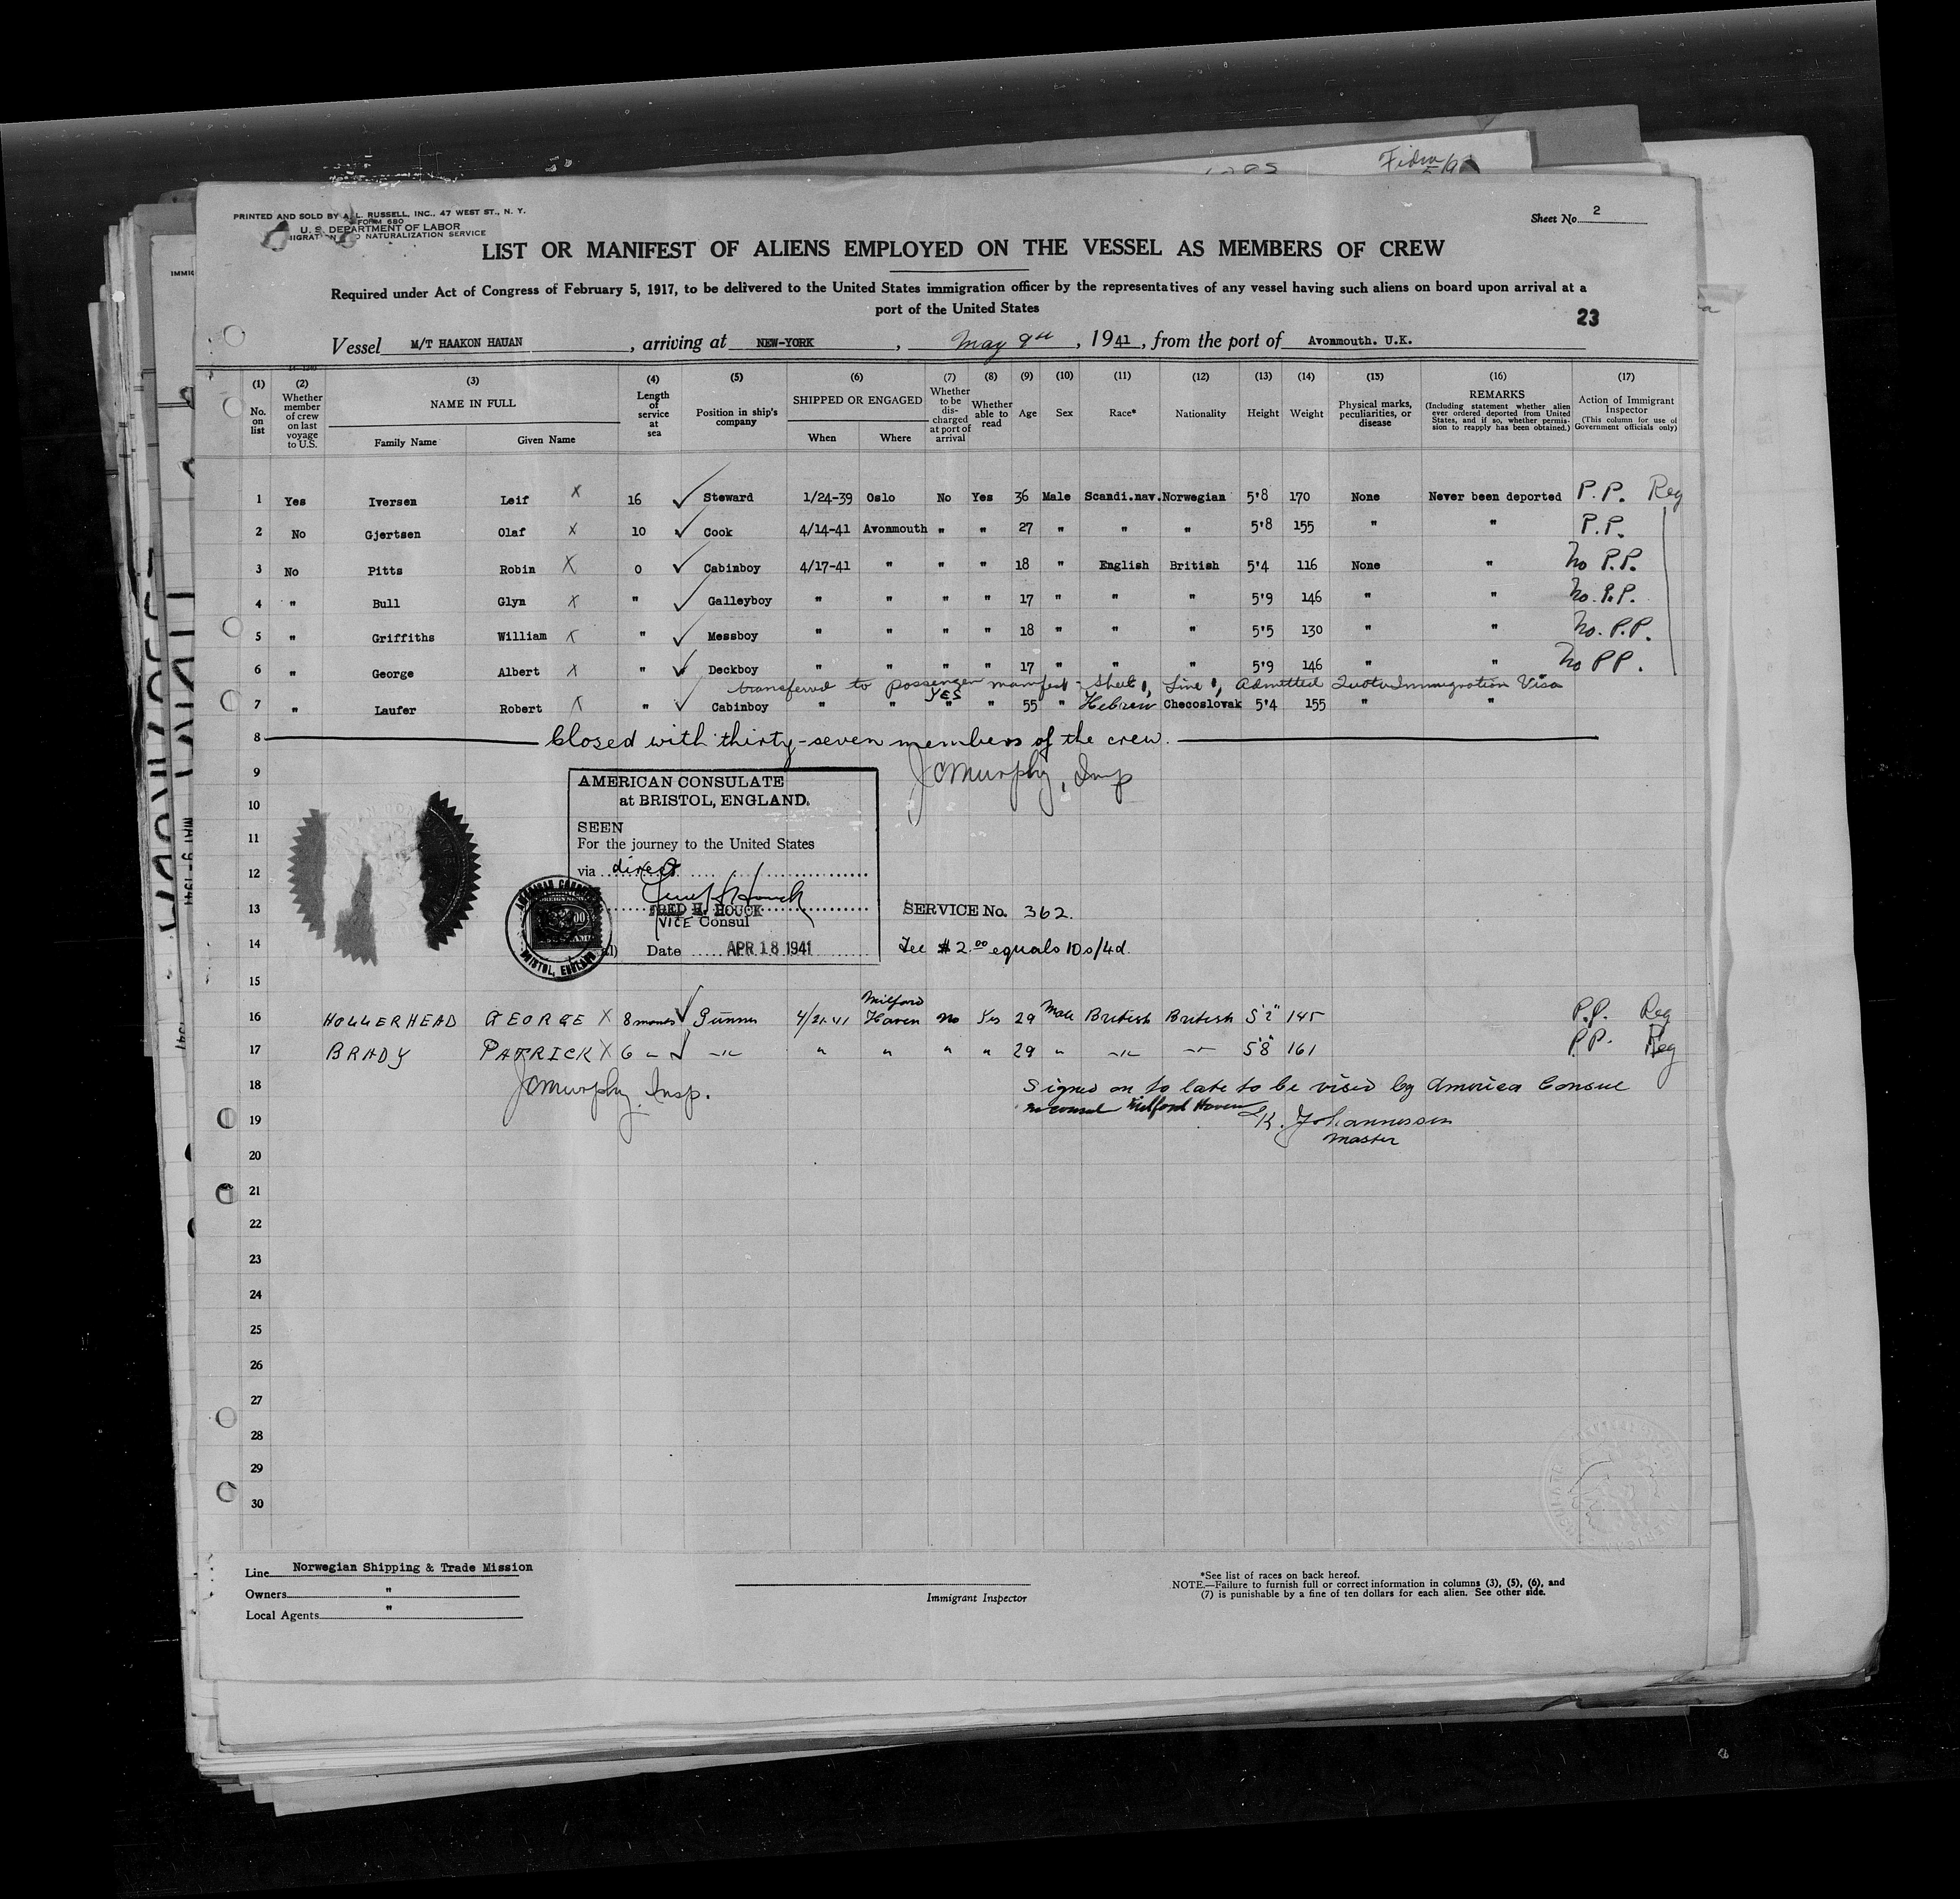 Fidm
PRINTED AND SOLD BY A. L. RUSSELL, INC., 47 WEST ST., N. Y.
FORM 680
U. S. DEPARTMENT OF LABOR
NATURALIZATION SERVICE
Sheet No. 2
LIST OR MANIFEST OF ALIENS EMPLOYED ON THE VESSEL AS MEMBERS OF CREW
Required under Act of Congress of February 5, 1917, to be delivered to the United States immigration officer by the representatives of any vessel having such aliens on board upon arrival at a
port of the United States
23
Vessel M/T HAAKON HAUAN, arriving at NEW-YORK, May 9th, 1941, from the port of Avonmouth. U.K.
(1) (2) (3) (4) (5) (6) (7) (8) (9) (10) (11) (12) (13) (14) (15) (16) (17)
No. on list
Whether member of crew on last voyage to U.S.
NAME IN FULL
Family Name Given Name
Length of service at sea
Position in ship's company
SHIPPED OR ENGAGED
When Where
Whether to be discharged at port of arrival
Whether able to read
Age
Sex
Race*
Nationality
Height
Weight
Physical marks, peculiarities, or disease
REMARKS
(Including statement whether alien ever ordered deported from United States, and if so, whether permission to reapply has been obtained.)
Action of Immigrant Inspector
(This column for use of Government officials only)
1 Yes Iversen Leif X 16 ✓ Steward 1/24-39 Oslo No Yes 36 Male Scandi.nav. Norwegian 5'8 170 None Never been deported P.P. Reg
2 No Gjertsen Olaf X 10 ✓ Cook 4/14-41 Avonmouth " " 27 " " " 5'8 155 " " P.P.
3 No Pitts Robin X 0 ✓ Cabinboy 4/17-41 " " " 18 " English British 5'4 116 None " No P.P.
4 " Bull Glyn X " ✓ Galleyboy " " " " 17 " " " 5'9 146 " " No. P.P.
5 " Griffiths William X " ✓ Messboy " " " " 18 " " " 5'5 130 " " No. P.P.
6 " George Albert X " ✓ Deckboy " " " " 17 " " " 5'9 146 " " No PP.
transferred to passenger manifest - Sheet 1, Line 1, Admitted Quota Immigration Visa
YES
7 " Laufer Robert X " ✓ Cabinboy " " " " 55 " Hebrew Checoslovak 5'4 155 " "
8 Closed with thirty-seven members of the crew.
9 JCMurphy, Insp
10
11
12
13
14
15
AMERICAN CONSULATE
at BRISTOL, ENGLAND.
SEEN
For the journey to the United States
via direct
FRED H. HOUCK
VICE Consul
Date APR 18 1941
AMERICAN CONSULATE
BRISTOL, ENGLAND
SERVICE No. 362.
Fee $2.00 equals 10s/4d.
16 HOLLERHEAD GEORGE X 8 months ✓ Gunner 4/21-41 Milford Haven No Yes 29 Male British British 5'2" 145 P.P. Reg
17 BRADY PATRICK X 6 " ✓ " " " " " 29 " " " 5'8" 161 P.P. Reg
18 JCMurphy. Insp. Signed on to late to be vised by America Consul
no consul Milford Haven
19 K. Johannessen
Master
20
21
22
23
24
25
26
27
28
29
30
Line Norwegian Shipping & Trade Mission
Owners "
Local Agents "
Immigrant Inspector
*See list of races on back hereof.
NOTE.—Failure to furnish full or correct information in columns (3), (5), (6), and
(7) is punishable by a fine of ten dollars for each alien. See other side.